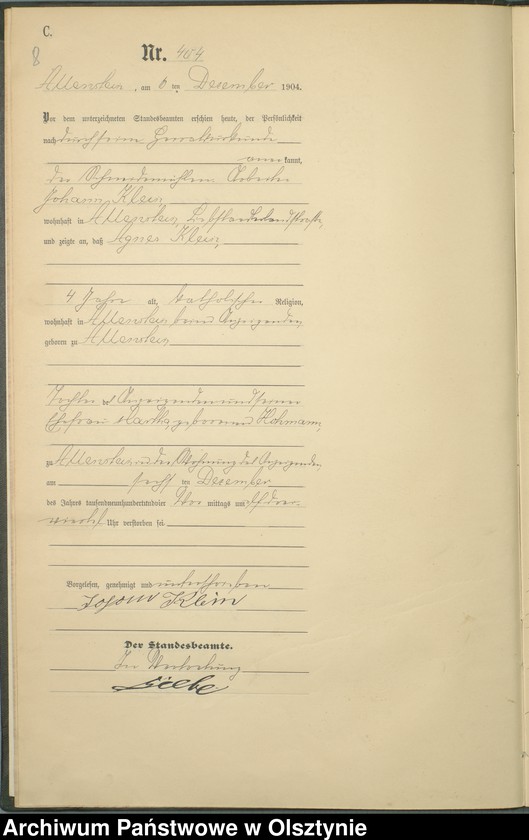 C.
8
Nr. 404
Allenstein, am 6 ten Dezember 1904.
Vor dem unterzeichneten Standesbeamten erschien heute, der Persönlichkeit
nach durch seine Heiratsurkunde
anerkannt,
der Schneidemühlen Arbeiter
Johann Klein,
wohnhaft in Allenstein,
und zeigte an, daß Agnes Klein,
4 Jahre alt, katholischer Religion,
wohnhaft in Allenstein beim Anzeigenden,
geboren zu Allenstein,
Tochter des Anzeigenden und seiner
Ehefrau Martha, geborenen Hohmann,
zu Allenstein in der Wohnung des Anzeigenden,
am sechs ten Dezember
des Jahres tausendneunhundertundvier Vor mittags um elf drei
viertel Uhr verstorben sei.
Vorgelesen, genehmigt und unterschrieben
Johann Klein
Der Standesbeamte.
In Vertretung
Archiwum Państwowe w Olsztynie